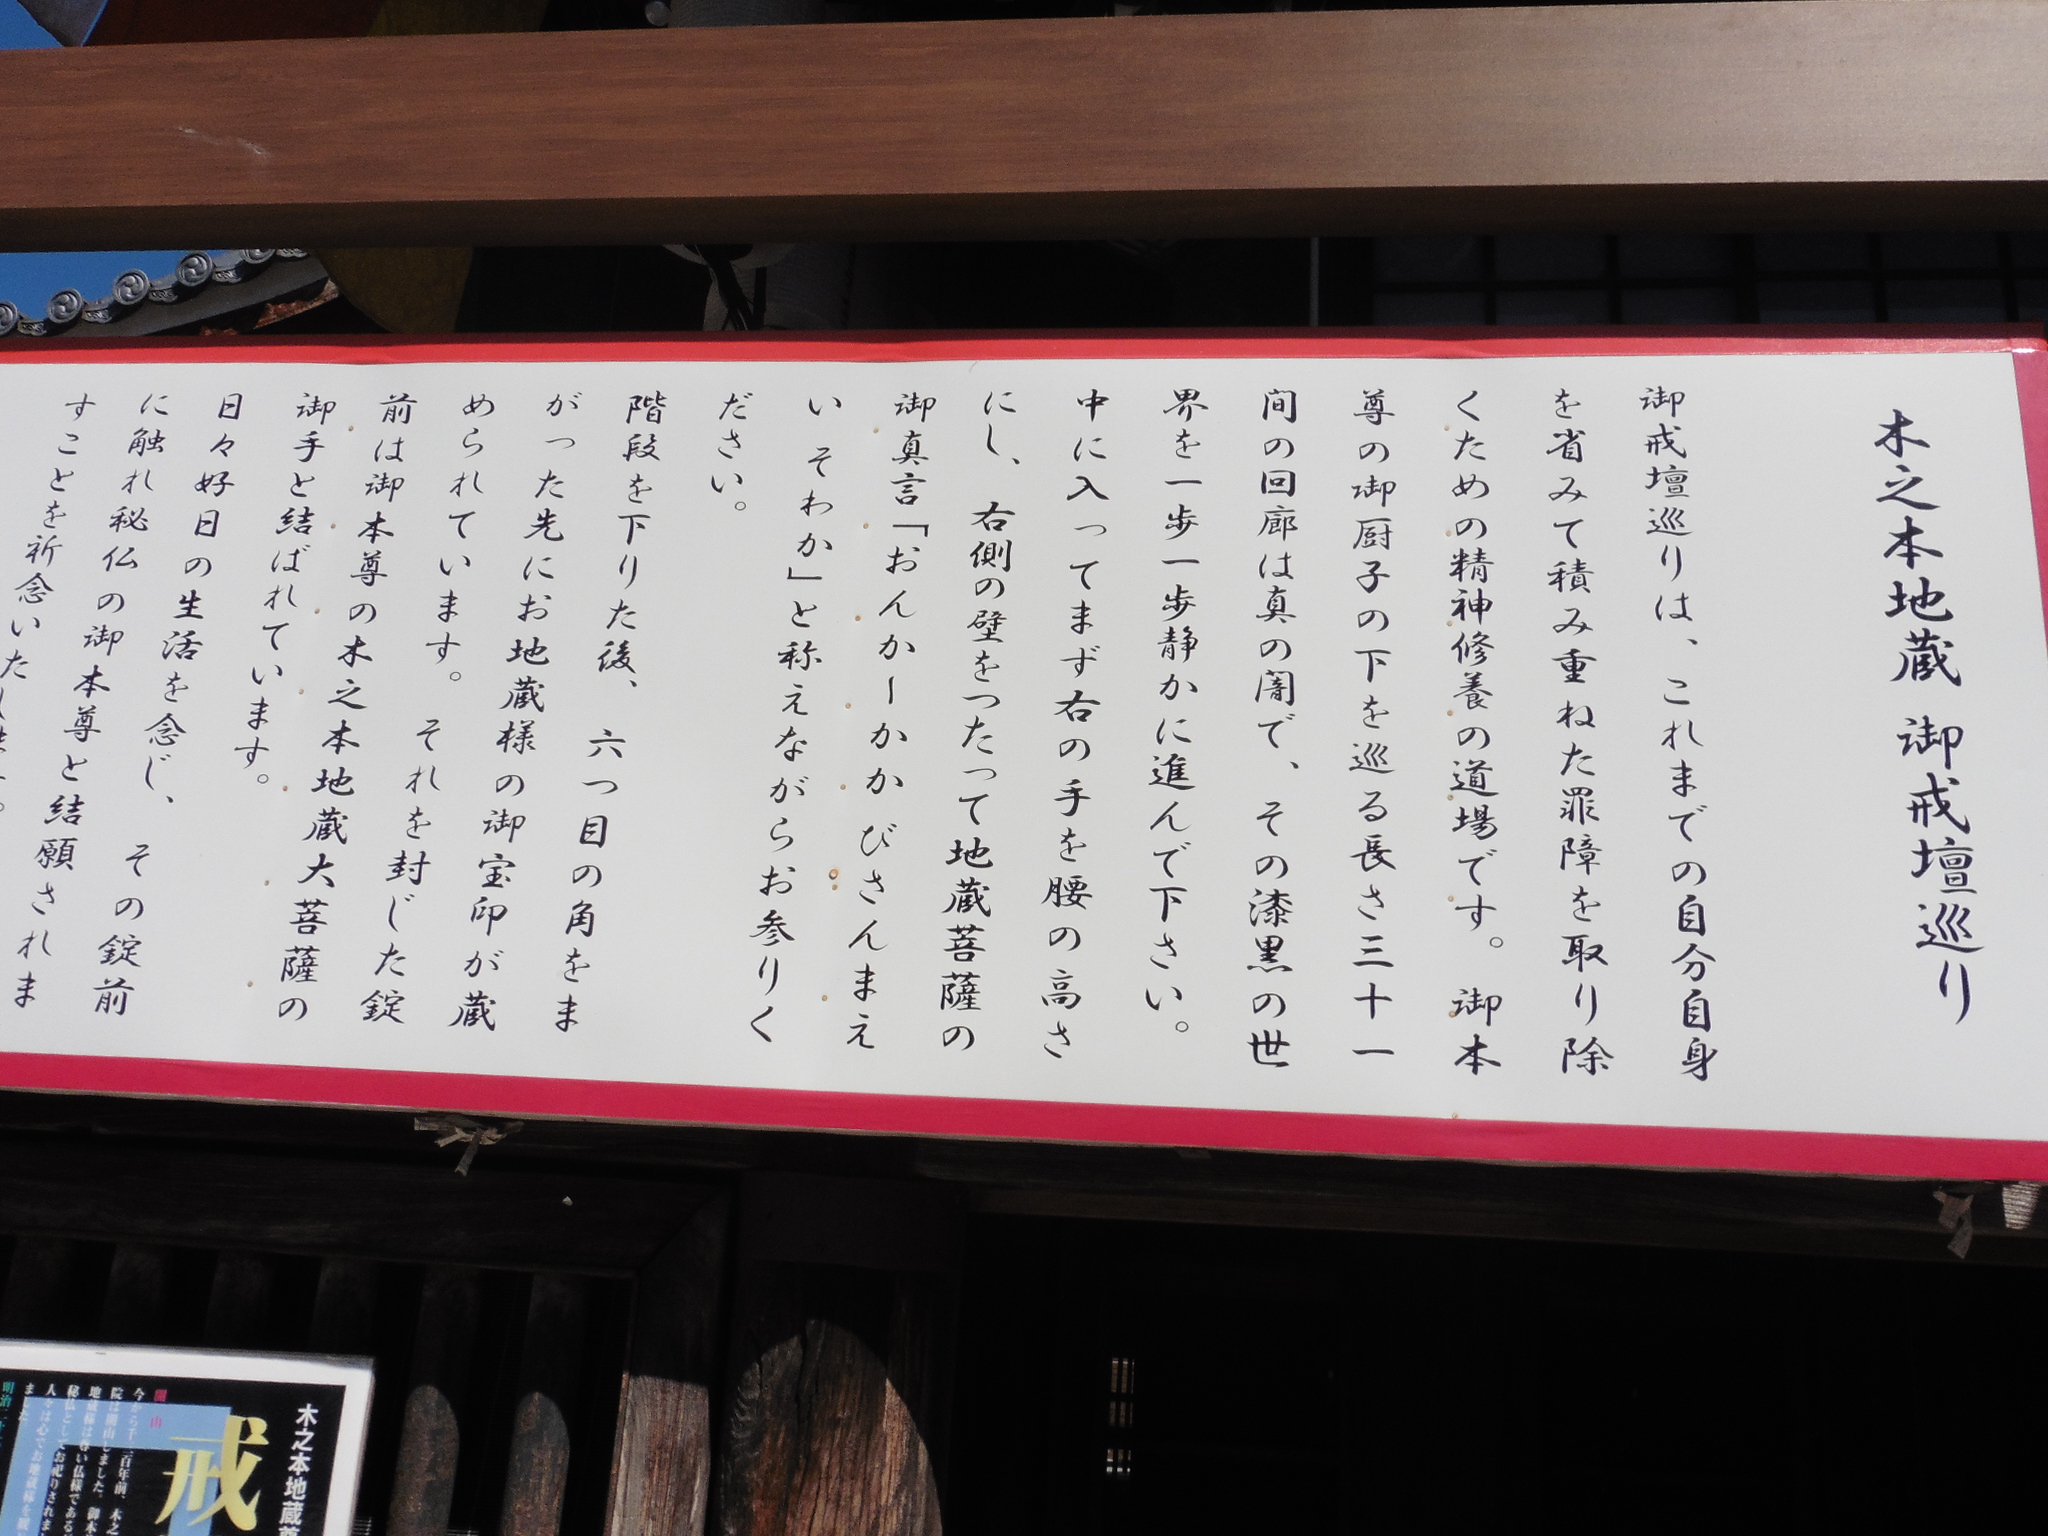 木之本地蔵 御戒壇巡り
御戒壇巡りは、これまでの自分自身
を省みて積み重ねた罪障を取り除
くための精神修養の道場です。御本
尊の御厨子の下を巡る長さ三十一
間の回廊は真の闇で、その漆黒の世
界を一歩一歩静かに進んで下さい。
中に入ってまず右の手を腰の高さ
にし、右側の壁をつたって地蔵菩薩の
御真言「おんかーかかびさんまえ
い そわか」と称えながらお参りく
ださい。
階段を下りた後、六つ目の角をま
がった先にお地蔵様の御宝印が蔵
められています。それを封じた錠
前は御本尊の木之本地蔵大菩薩の
御手と結ばれています。
日々好日の生活を念じ、その錠前
に触れ秘仏の御本尊と結願されま
すことを祈念いたします。
木之本地蔵
戒
開山